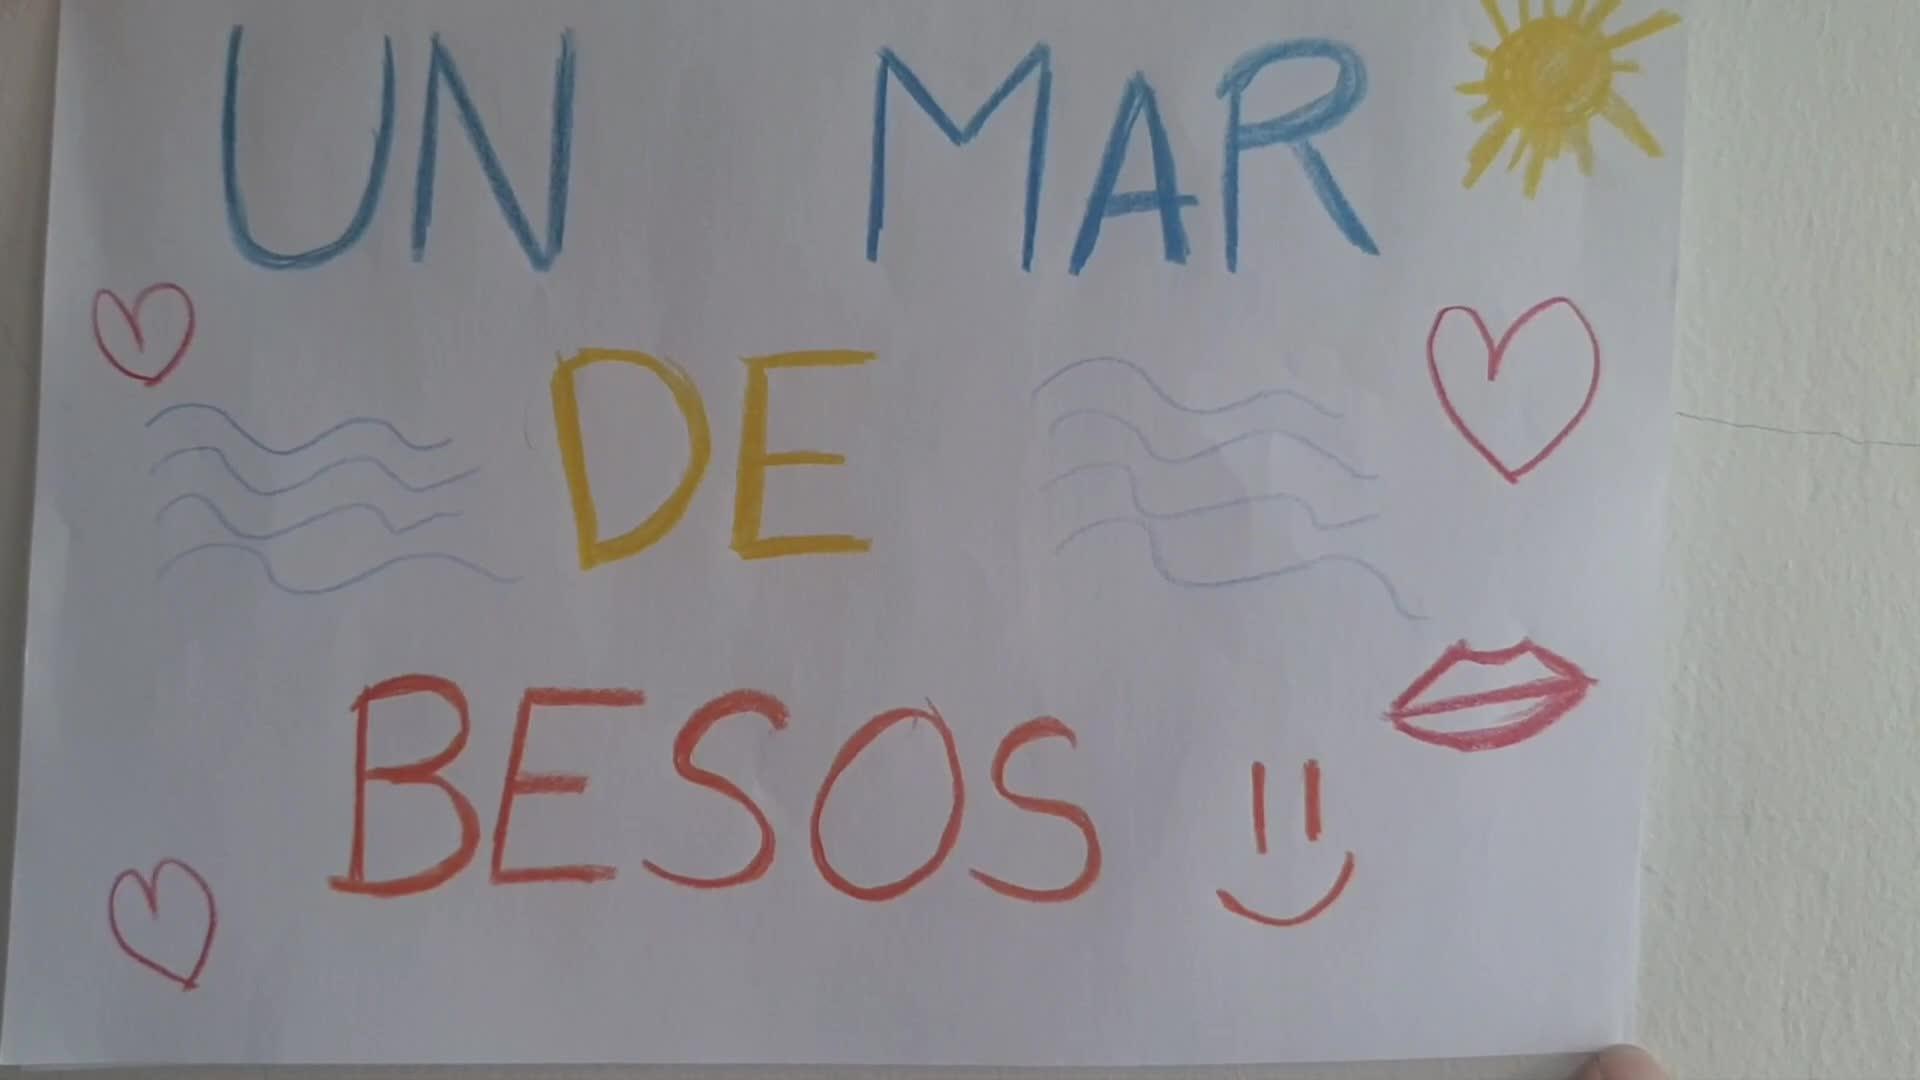 UN MAR
DE
BESOS